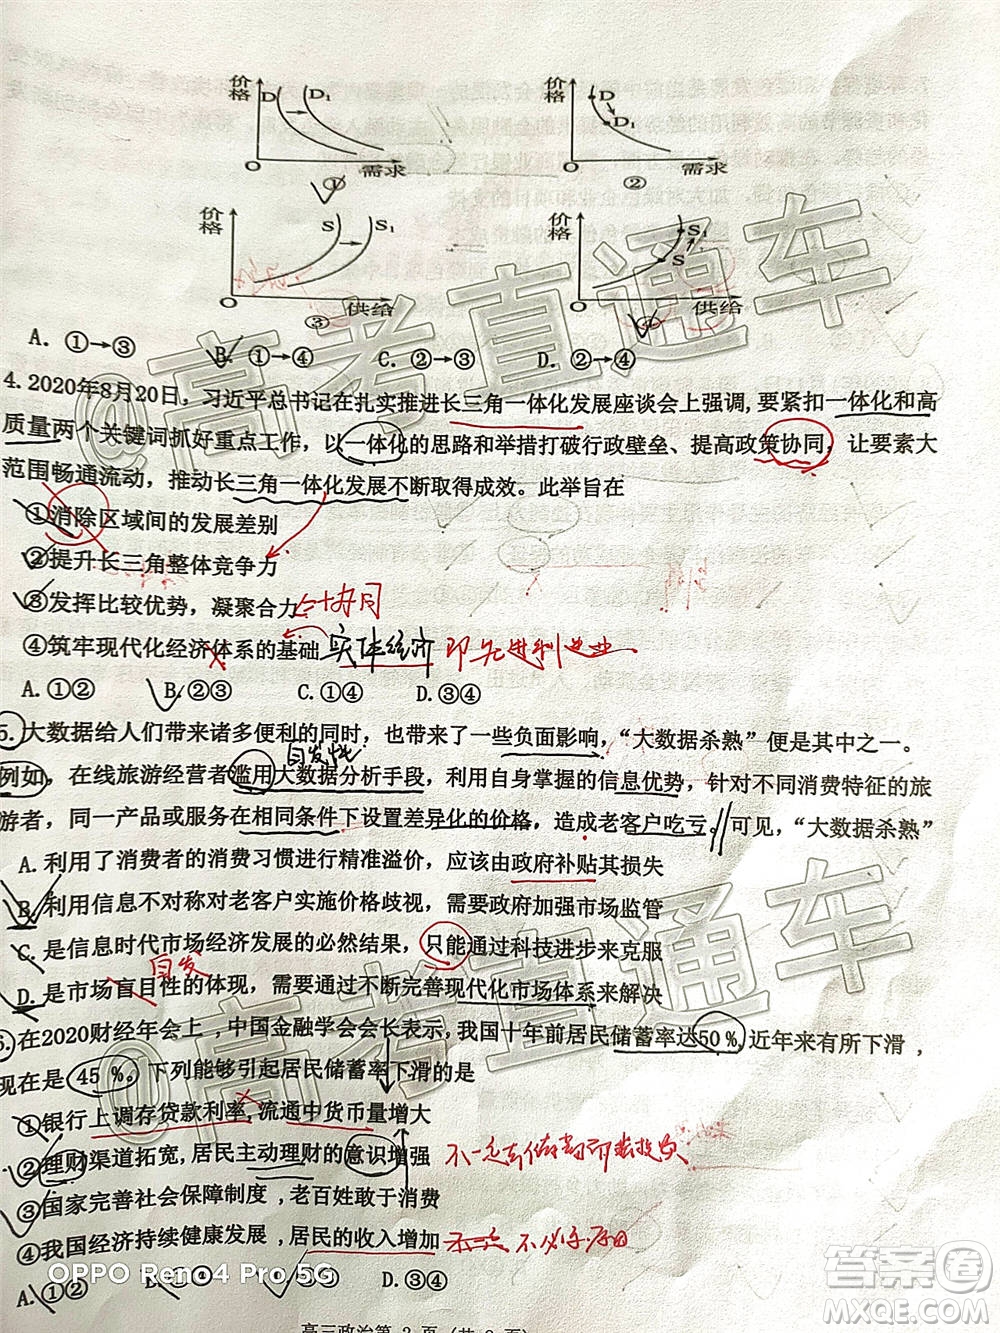 价格
D
D₁
O
需求
①
价格
D
D₁
O
需求
②
价格
S
S₁
O
供给
③
价格
S₁
S
O
供给
④
A. ①→③ B. ①→④ C. ②→③ D. ②→④
4.2020年8月20日，习近平总书记在扎实推进长三角一体化发展座谈会上强调,要紧扣一体化和高
质量两个关键词抓好重点工作，以一体化的思路和举措打破行政壁垒、提高政策协同，让要素大
范围畅通流动，推动长三角一体化发展不断取得成效。此举旨在
①消除区域间的发展差别
②提升长三角整体竞争力
③发挥比较优势，凝聚合力 协同
④筑牢现代化经济体系的基础 实体经济 即先进制造业
A.①② B.②③ C.①④ D.③④
5.大数据给人们带来诸多便利的同时，也带来了一些负面影响，“大数据杀熟”便是其中之一。
自发性
例如，在线旅游经营者滥用大数据分析手段，利用自身掌握的信息优势，针对不同消费特征的旅
游者，同一产品或服务在相同条件下设置差异化的价格，造成老客户吃亏。可见，“大数据杀熟”
A. 利用了消费者的消费习惯进行精准溢价，应该由政府补贴其损失
B. 利用信息优势对老客户实施价格歧视，需要政府加强市场监管
C. 是信息时代市场经济发展的必然结果，只能通过科技进步来克服
自发
D. 是市场盲目性的体现，需要通过不断完善现代化市场体系来解决
6.在2020财经年会上,中国金融学会会长表示,我国十年前居民储蓄率达50%,近年来有所下滑，
现在是45%。下列能够引起居民储蓄率下滑的是
①银行上调存贷款利率,流通中货币量增大
②理财渠道拓宽,居民主动理财的意识增强
③国家完善社会保障制度，老百姓敢于消费
④我国经济持续健康发展，居民的收入增加
A.①② B.②③ C.①④ D.③④
高三政治第 2 页
@高考直通车
@高考直通车
OPPO Reno4 Pro 5G
答案圈
MXQE.COM